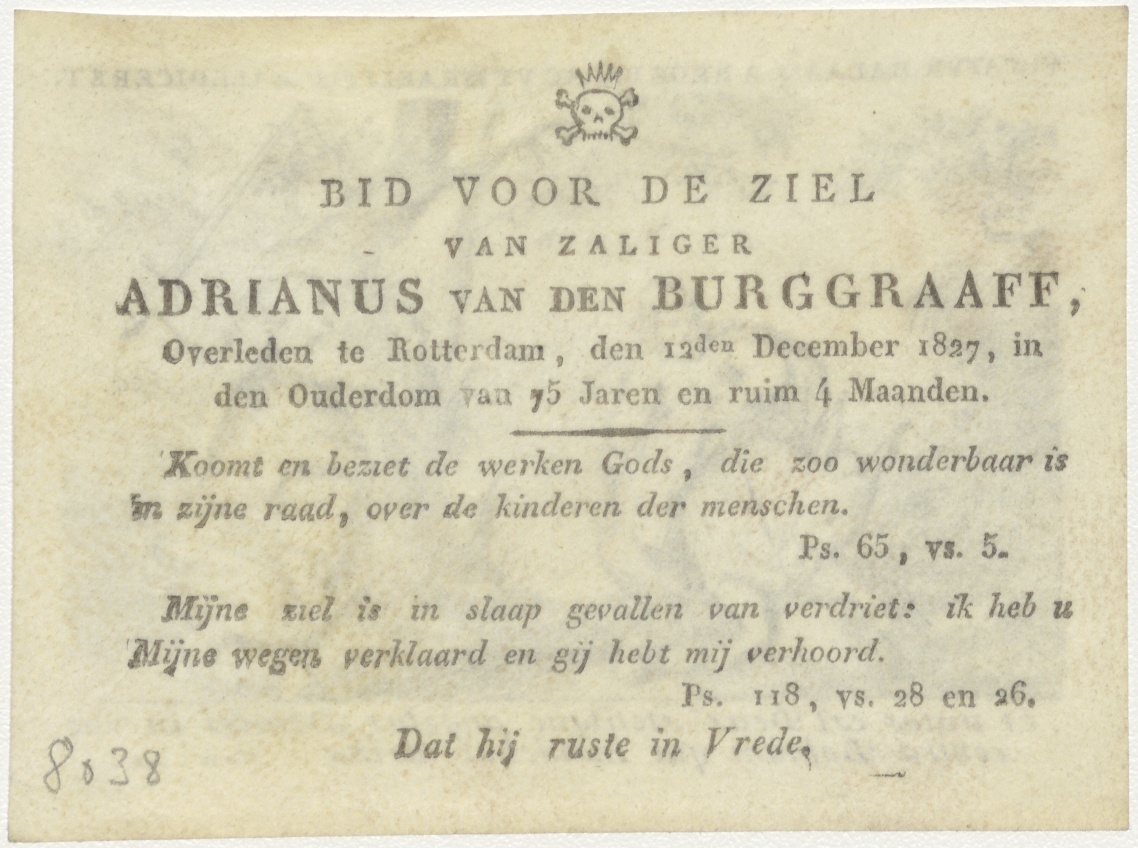 BID VOOR DE ZIEL
VAN ZALIGER
ADRIANUS VAN DEN BURGGRAAFF,
Overleden te Rotterdam, den 12den December 1827, in
den Ouderdom van 75 Jaren en ruim 4 Maanden.
Koomt en beziet de werken Gods, die zoo wonderbaar is
in zijne raad, over de kinderen der menschen.
Ps. 65, vs. 5.
Mijne ziel is in slaap gevallen van verdriet: ik heb u
Mijne wegen verklaard en gij hebt mij verhoord.
Ps. 118, vs. 28 en 26.
Dat hij ruste in Vrede.
8038